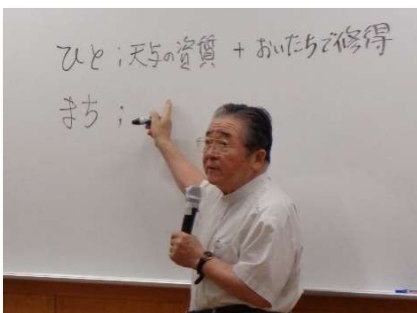 ひと；天与の資質 + おいたちで修得
まち；